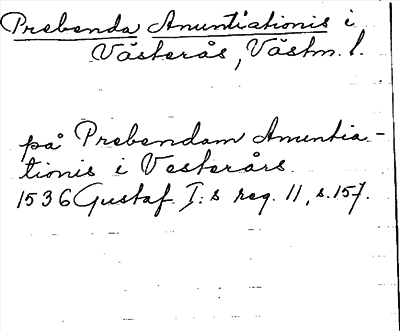 Prebenda Anuntiationis i
Västerås, Västm. l.
på Prebendam Anuntia-
tionis i Vesterårs
1536 Gustaf I:s reg. 11, s. 157.